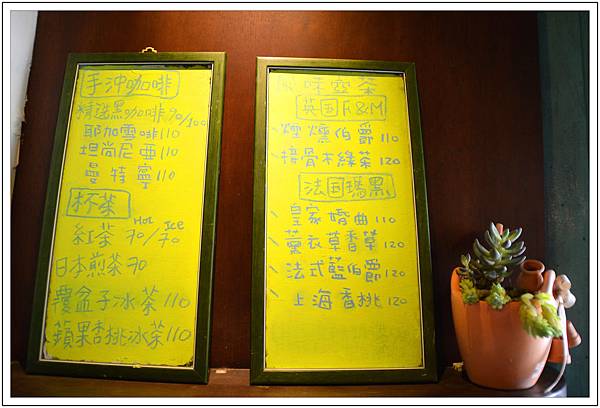 手沖咖啡
精選黑咖啡90/100
耶加雪啡110
坦尚尼亞110
曼特寧110
杯茶
Hot Ice
紅茶70/70
日本煎茶70
覆盆子冰茶110
蘋果杏桃冰茶110
味壺茶
英国F&M
煙燻伯爵110
接骨木綠茶120
法国瑪黑
皇家婚曲110
薰衣草香草120
法式藍伯爵120
上海香桃120